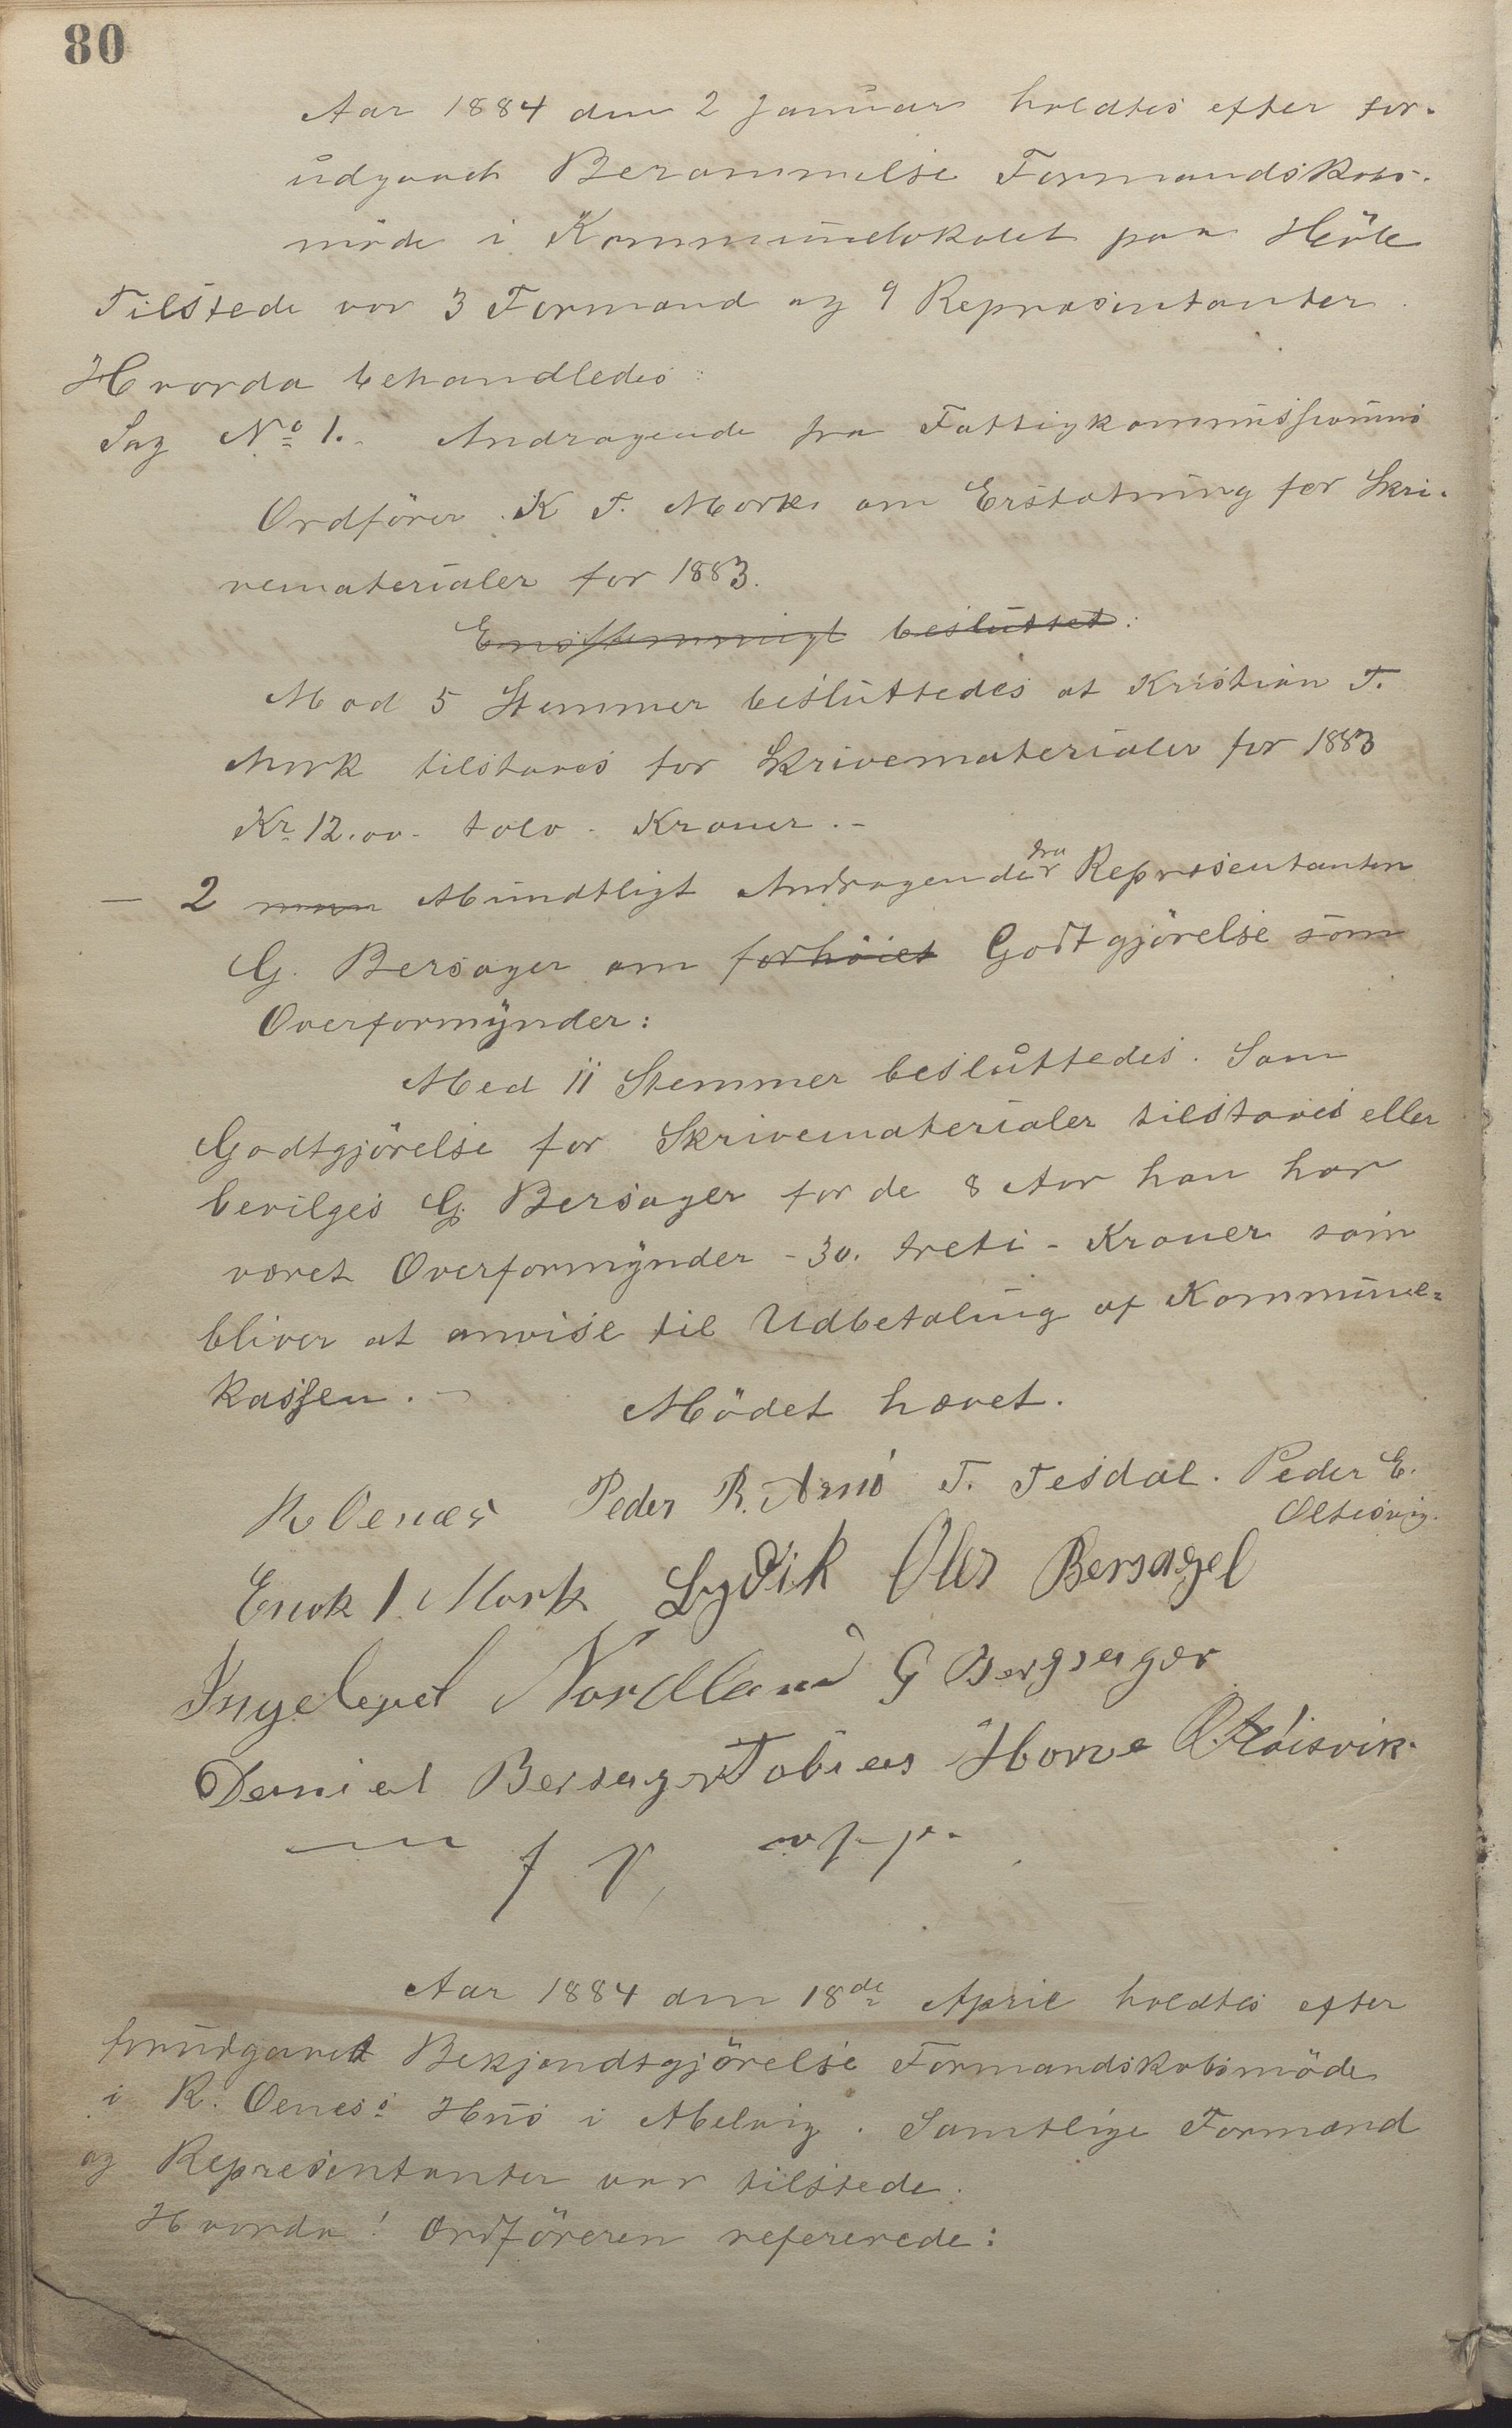 80
Aar 1884 den 2 Januar holdtes efter for-
udgaaet Berammelse Formandskabs-
möde i Kommunelokalet paa Höle
Tilstede var 3 Formænd og 9 Repræsentanter.
Hvorda behandledes:
Sag No 1. Andragende fra Fattigkommissionens
Ordförer K T. Mork om Erstatning for Skri-
vematerialer for 1883.
Enstemmigt besluttet:
Mod 5 Stemmer besluttedes at Kristian T.
Mork tilstaaes for Skrivematerialer for 1883
Kr 12.00 - tolv - Kroner.-
— 2 Mundtligt Andragende fra Repræsentanten
G. Bersager om forhöiet Godtgjörelse som
Overformynder:
Med 11 Stemmer besluttedes. Som
Godtgjörelse for Skrivematerialer tilstaaes eller
bevilges G. Bersager for de 8 Aar han har
været Overformynder - 30. treti - Kroner som
bliver at anvise til Udbetaling af Kommune=
kassen.-
Mödet hævet.
R Oenæs Peder R. Arnö T. Tesdal. Peder E.
Oltesvig.
Enok I. Mork Lydik Olls Bersagel
Ingebret Nordland G Bergsager
Daniel Bersager Tobias Horve O. T. Höisvik.
Aar 1884 den 18de April holdtes efter
forudgaaet Bekjendtgjörelse Formandskabsmöde
i R. Oenes's Hus i Melvig. Samtlige Formænd
og Repræsentanter var tilstede.
Hvorda! Ordföreren refererede: